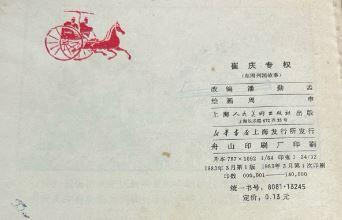 崔庆专权
（东周列国故事）
改编 潘勤孟
绘画 周申
上海人民美术出版社出版
上海长乐路672弄33号
新华书店上海发行所发行
舟山印刷厂印刷
开本 787×1092 1/64 印张 2 24/32
1983年3月第1版 1983年3月第1次印刷
印数 000,001—140,000
统一书号：8081·13245
定价：0.13元